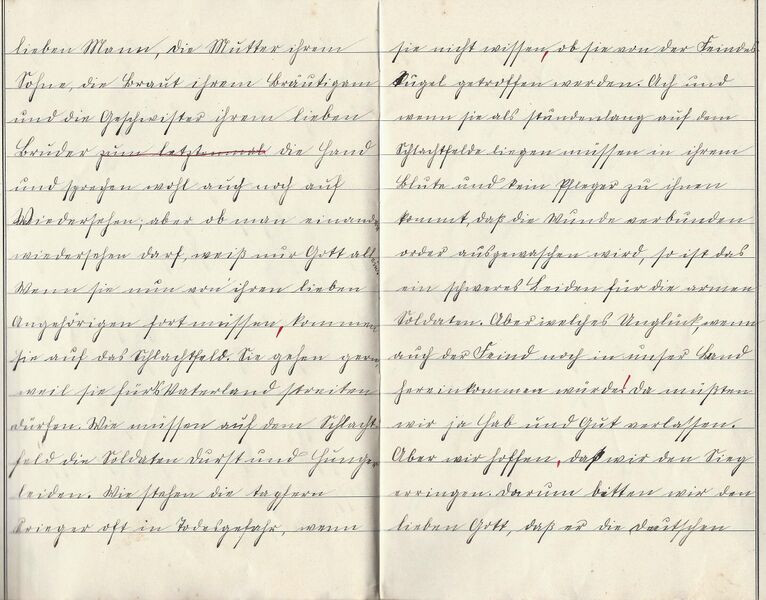 lieben Mann, die Mutter ihrem
Sohne, die Braut ihrem Bräutigam
und die Geschwister ihrem lieben
Bruder zum letztenmal die Hand
und sprechen wohl auch noch auf
Wiedersehen; aber ob man einander
wiedersehen darf, weiß nur Gott allein.
Wenn sie nun von ihren lieben
Angehörigen fort müssen, kommen
sie auf das Schlachtfeld. Sie gehen gern,
weil sie fürs Vaterland streiten
dürfen. Wie müssen auf dem Schlacht-
feld die Soldaten Durst und Hunger
leiden. Wie stehen die tapfern
Krieger oft in Todesgefahr, wenn
sie nicht wissen, ob sie von der Feindes
Kugel getroffen werden. Ach und
wenn sie als stundenlang auf dem
Schlachtfelde liegen müssen in ihrem
Blute und kein Pfleger zu ihnen
kommt, daß die Wunde verbunden
order ausgewaschen wird, so ist das
ein schweres Leiden für die armen
Soldaten. Aber welches Unglück, wenn
auch der Feind noch in unser Land
hereinkommen würde! Da müßten
wir ja Hab und Gut verlassen.
Aber wir hoffen, daß wir den Sieg
erringen. Darum bitten wir den
lieben Gott, daß er die deutschen